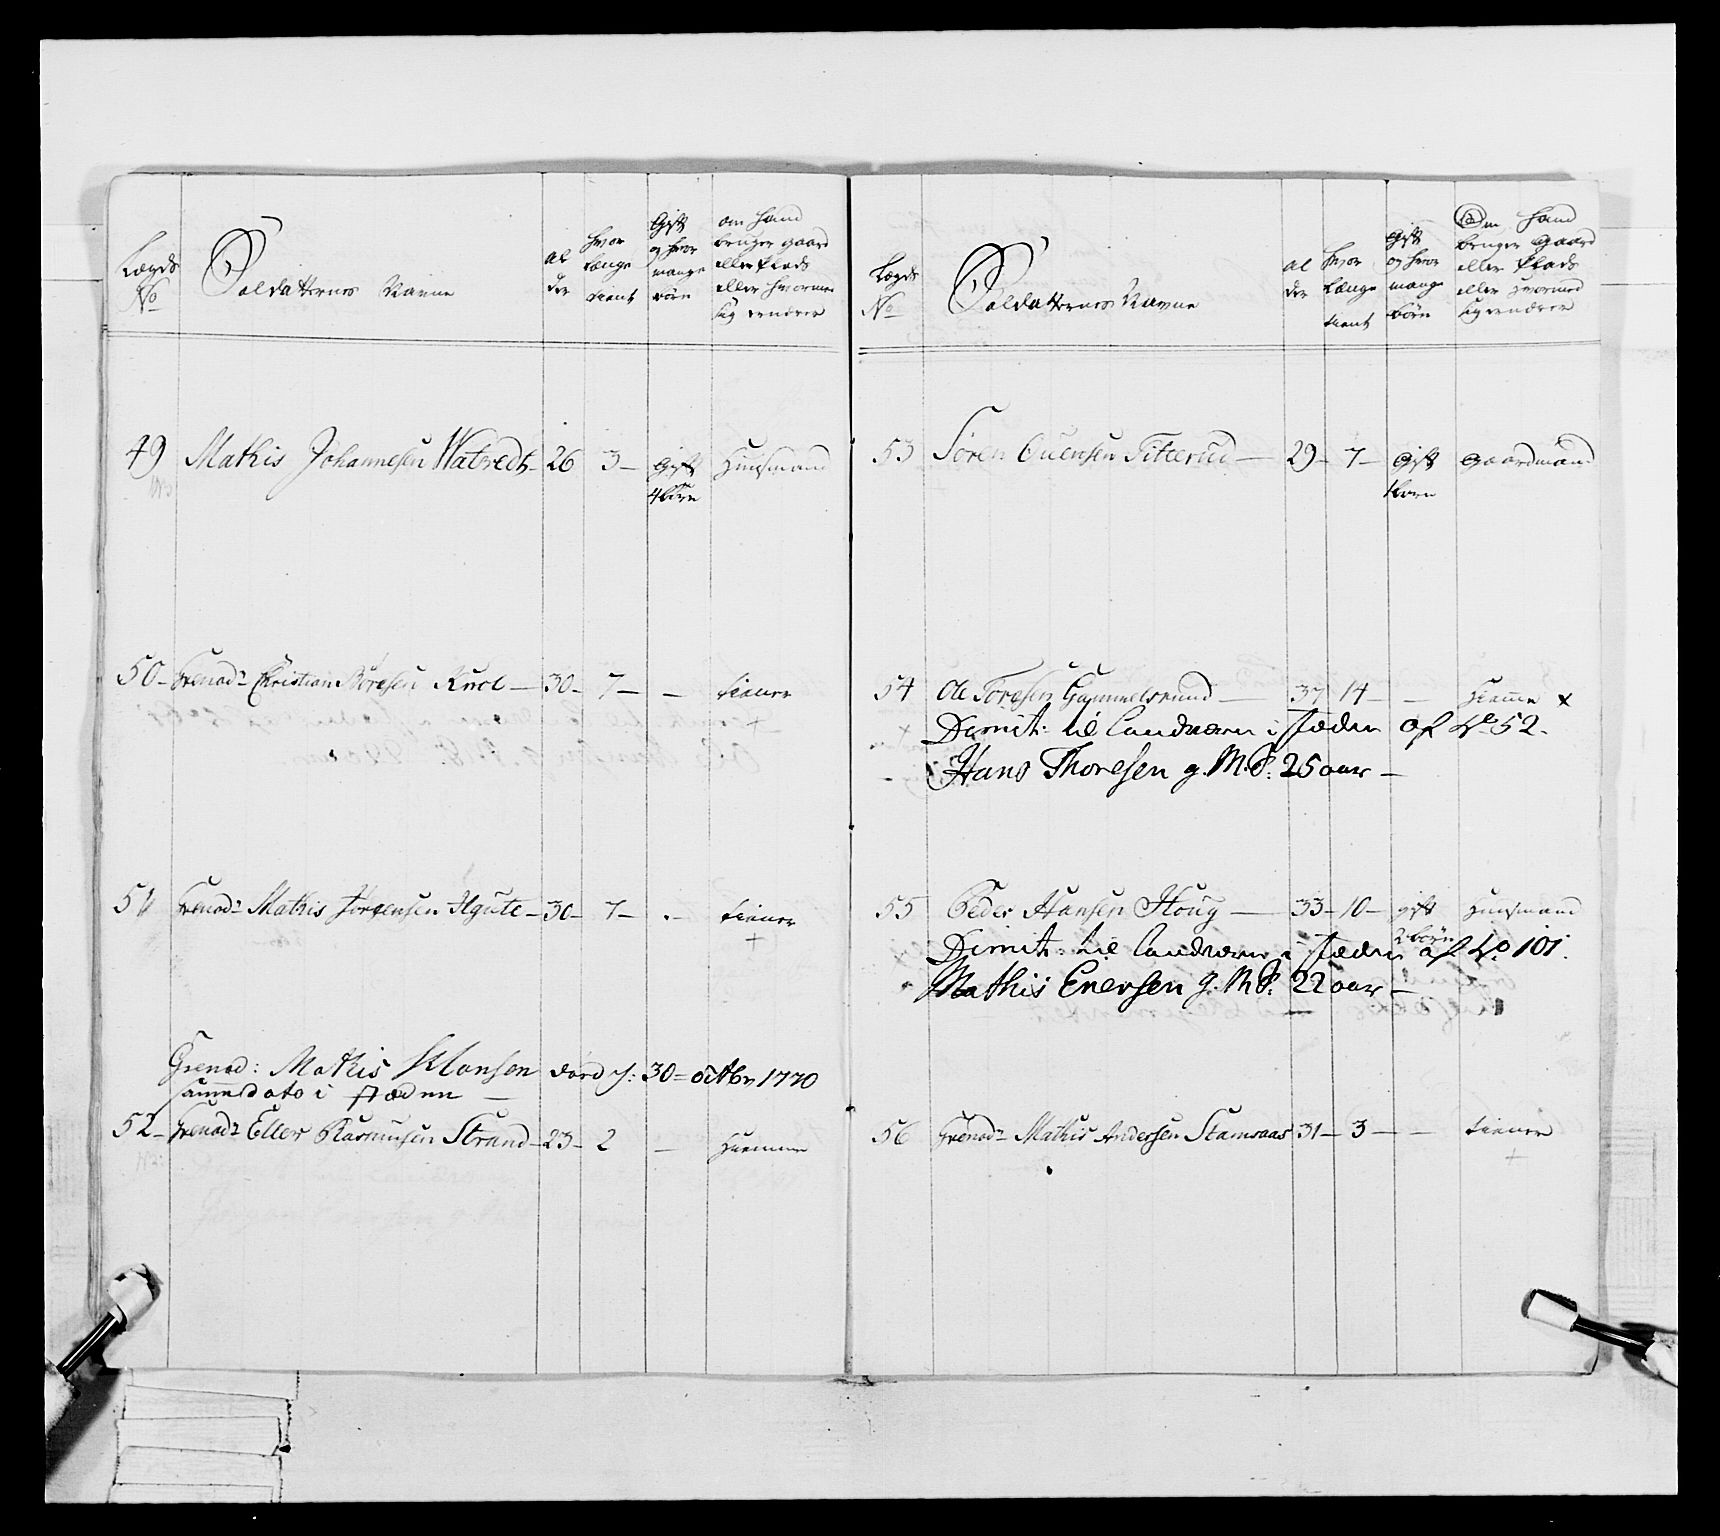 Lægds No
Soldatternes Navne
al der
hvor længe tient
Gift og hvor mange börn
om hand bruger gaard eller Plads eller hvormed sig ernærer
49 Mathis Johannesen Watvedt - 26 3 - Gift Huusmand
4 börn
50 - Grenad: Christian Boresen Knol - 30 - 7 - - tiener
+
51 Grenad: Mathis Jörgensen - 30 - 7 - - tiener
+
Grenad: Mathis Monsen död d: 30 octbr 1770
samme dato i stæden
52 - Grenad: Eller Rasmusen Strand - 23 - 2 - Hiemme
Lægds No
Soldatternes Navne
al der
hvor længe tient
Gift og hvor mange börn
Om hand bruger Gaard eller Plads eller hvormed sig ernærer
53 Sören Ouensen Titterud - 29 - 7 - Gift Gaardmand
1 barn
54 Ole Toresen Gammelsrund - 37 14 - - Hiemme x
Dimit: til Landværn i stæden af No 52.
Hans Thoresen g. M. S: 25 aar -
55 Peder Hansen Houg - 33 - 10 - gift Huusmand
2 börn
Dimit: til Landværn i stæden af No 101.
Mathis Enersen g. M. S: 22 aar -
56 Grenad: Mathis Andersen Stamsaas 31 - 3 - - tiener
+